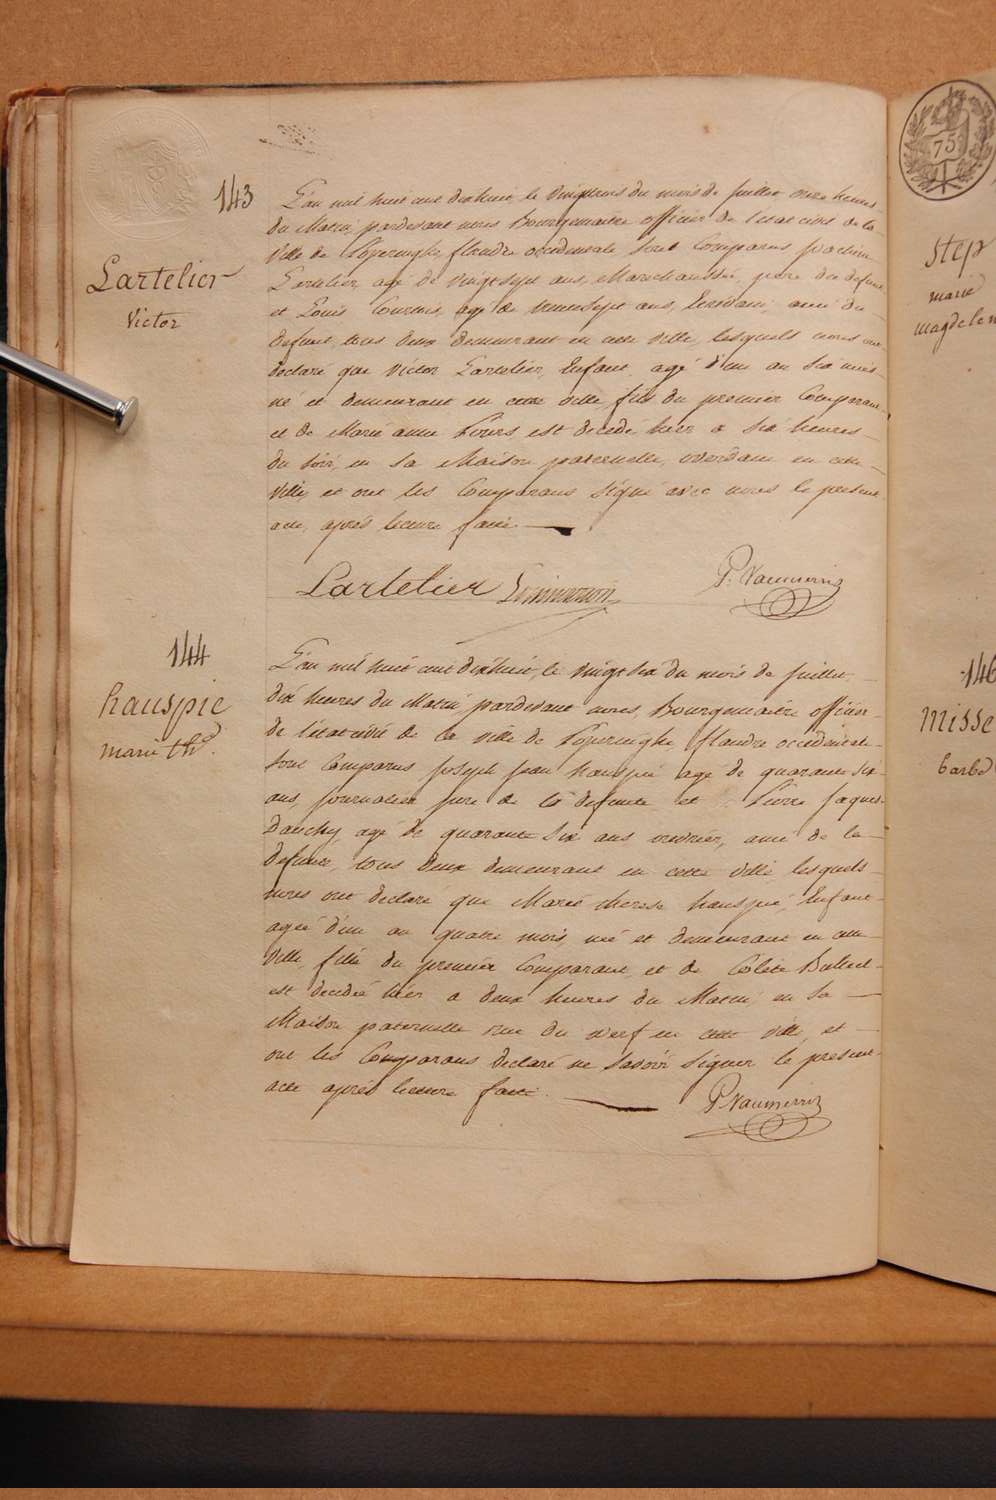 143
Lartelier
Victor
L'an mil huit cent dixhuit, le vingttrois du mois de juillet onze heures
du Matin, pardevant nous Bourgemaitre officier de l'état civil de la
Ville de Poperinghe, flandre occidentale sont Comparus joachim
Lartelier, agé de vingtsept ans, Marechaussée, pere du defunt
et Louis agé de ans, Ecrivain, ami du
defunt, tous deux demeurant en cette ville, lesquels nous ont
declaré que Victor Lartelier, Enfant, agé d'un an six mois
né et demeurant en cette ville, fils du premier Comparant
et de Marie anne est décédé hier a six heures
du soir, en sa Maison paternelle, en cette
ville, et ont les Comparans signé avec nous le present
acte, après lecture faite.
Lartelier P. Vanmerris
144
hauspie
marie thse.
L'an mil huit cent dixhuit, le vingt six du mois de juillet
dix heures du Matin pardevant nous, Bourgemaitre officier
de l'état civil de la ville de Poperinghe flandre occidentale
sont Comparus joseph jean hauspie agé de quarante six
ans, journalier pere de la defunte et Pierre jaques
Dauchy, agé de quarante six ans ouvrier, ami de la
defunte, tous deux demeurant en cette ville, lesquels
nous ont declaré que Marie therese hauspie, Enfant
agée d'un an quatre mois, née et demeurant en cette
ville, fille du premier Comparant, et de Colete
est decedée hier a deux heures du Matin, en sa
Maison paternelle rue du nerf en cette ville, et
ont les Comparans declaré ne savoir signer le present
acte après lecture faite.
P. Vanmerris
75
Step
marie
magdelen
146
Misse
barbe